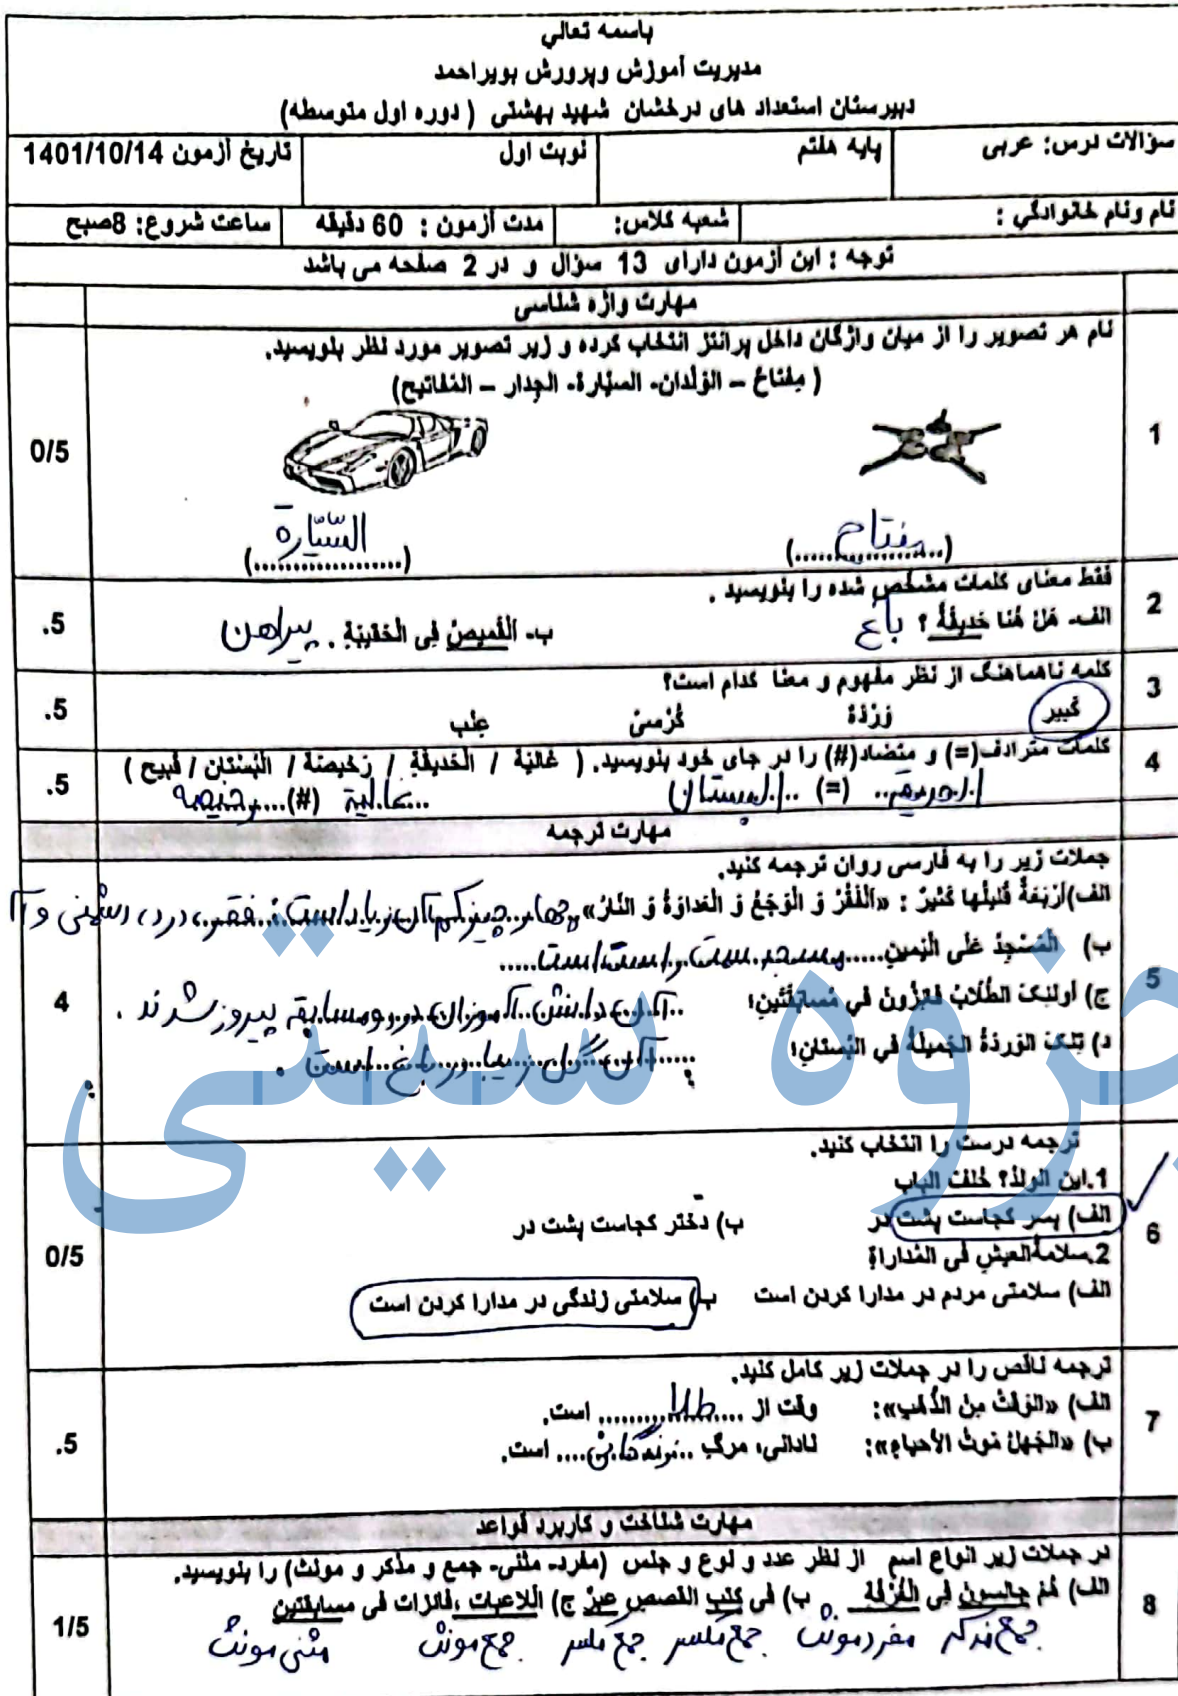 باسمه تعالي
مدیریت آموزش وپرورش بویراحمد
دبیرستان استعداد های درخشان شهید بهشتی ( دوره اول متوسطه)
سؤالات درس: عربی پایه هفتم نوبت اول تاریخ آزمون 1401/10/14
نام ونام خانوادگي : شعبه کلاس: مدت آزمون : 60 دقیقه ساعت شروع: 8صبح
توجه : این آزمون دارای 13 سؤال و در 2 صفحه می باشد
مهارت واژه شناسی
نام هر تصویر را از میان واژگان داخل پرانتز انتخاب کرده و زیر تصویر مورد نظر بنویسید.
( مِفتاحُ – الوَلَدان- السیّارة- الجِدار – المَفاتیح)
1 0/5
(مفتاح) (السّیّارة)
فقط معنای کلمات مشخص شده را بنویسید .
2 الف- هَلْ هُنا حَدیقَةٌ ؟ باغ ب- اَلْقَمیصُ فِی الْحَقیبَةِ . پیراهن .5
کلمه ناهماهنگ از نظر مفهوم و معنا کدام است؟
3 کَبیر وَرْدَةٌ کُرْسیّ عِنَب .5
کلمات مترادف(=) و متضاد(#) را در جای خود بنویسید. ( غالیَة / الْحَدیقَة / رَخیصَة / الْبُسْتان / قَبیح )
4 الحدیقه (=) البستان غالیة (#) رخیصه .5
مهارت ترجمه
جملات زیر را به فارسی روان ترجمه کنید.
الف)أرْبَعَةٌ قَلیلُها کَثیرٌ : «اَلْفَقْرُ وَ الْوَجَعُ وَ الْعَداوَةُ وَ النّارُ» چهار چیز کم آن زیاد است : فقر ، درد ، دشمنی و آ
ب) الْمَسْجِدُ عَلَی الْیَمینِ..... مسجد سمت راست است .....
5 ج) أولئِکَ الطُّلّابُ فائِزونَ في مُسابَقَتَینِ؛ آن دانش آموزان در دو مسابقه پیروز شدند . 4
د) تِلکَ الوَردَةُ الجَمیلَةُ في البُستانِ؛ آن گل زیبا در باغ است .
ترجمه درست را انتخاب کنید.
1.این الولدُ؟ خَلفَ الباب
6 الف) پسر کجاست پشت در ب) دختر کجاست پشت در 0/5
2.سلامةُالعیشِ فی المُداراةِ
الف) سلامتی مردم در مدارا کردن است ب) سلامتی زندگی در مدارا کردن است
ترجمه ناقص را در جملات زیر کامل کنید.
7 الف) «الوَقتُ مِنَ الذَّهَبِ»: وقت از ....طلا.... است.
ب) «الجَهلُ مَوتُ الأحیاءِ»: نادانی، مرگ ..زندگان.. است. .5
مهارت شناخت و کاربرد قواعد
در جملات زیر انواع اسم از نظر عدد و نوع و جنس (مفرد- مثنی- جمع و مذکر و مونث) را بنویسید.
8 الف) هُمْ جالِسونَ فِی الْغُرْفَة ب) فی کتب القصص عبرٌ ج) اَللاعبات ،فائزات فی مسابقتین 1/5
جمع مذکر مفرد مونث جمع مکسر جمع مکسر جمع مونث مثنی مونث
جزوه سیتی